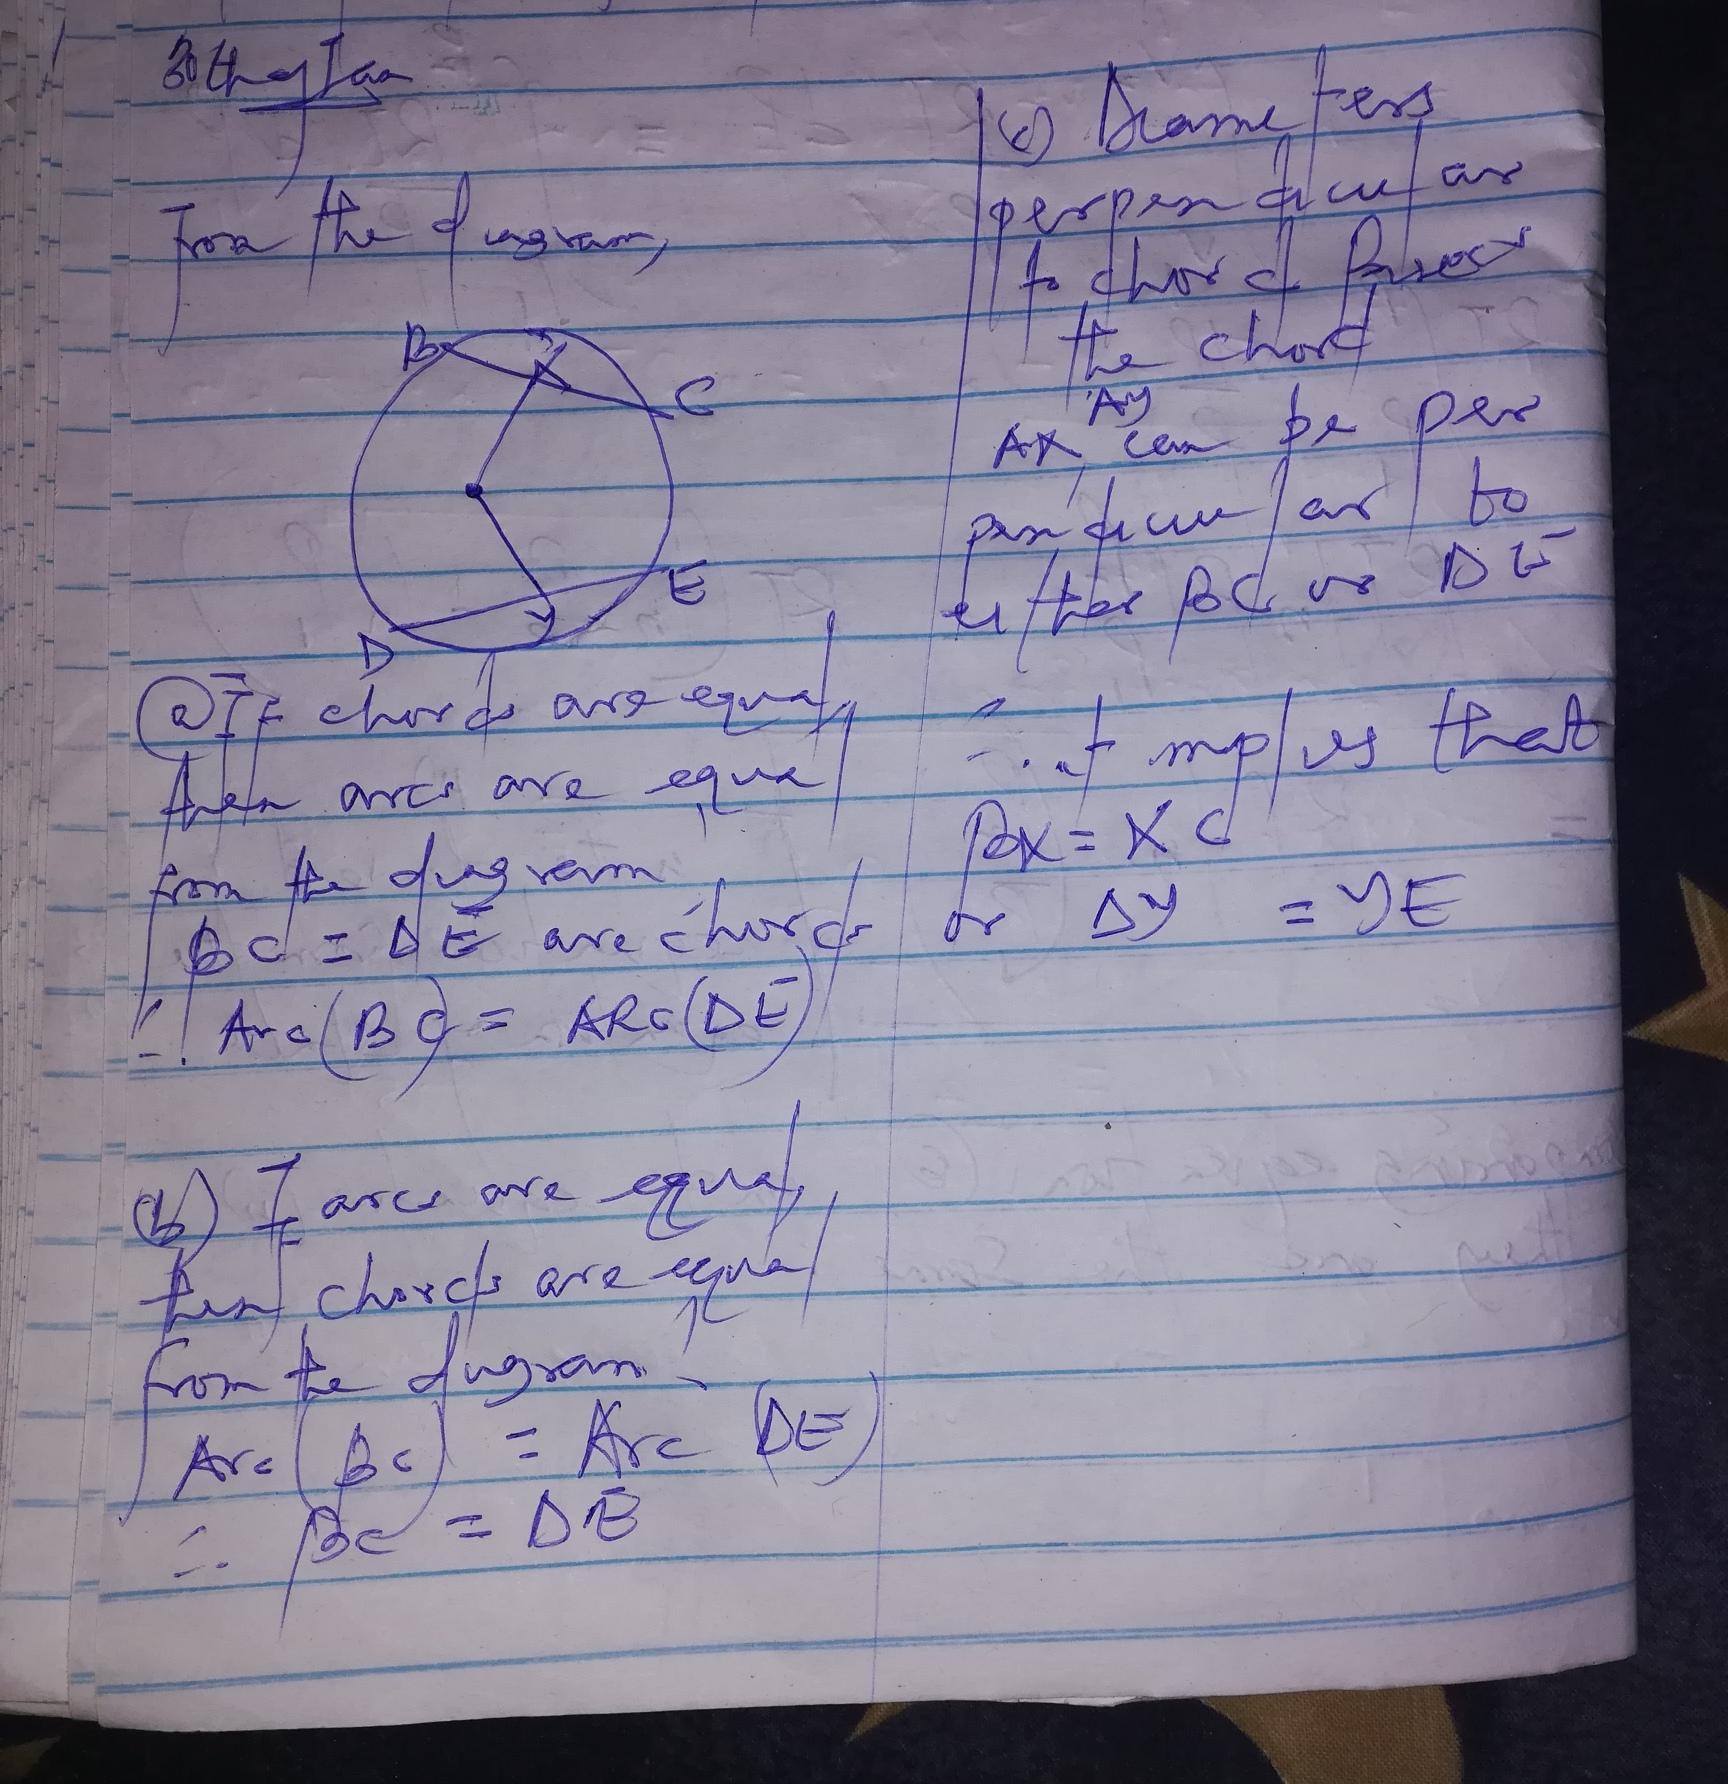 30th of Jan
From the diagram,
B
C
E
D
(a) If chords are equal,
then arcs are equal
from the diagram
BC = DE are chords
∴ Arc(BC) = ARc(DE)
(b) If arcs are equal,
then chords are equal
from the diagram
Arc(BC) = Arc (DE)
∴ BC = DE
(c) Diameters
perpendicular
to chord Bisect
the chord
AX, AY can be per
pendicular to
either BC or DE
∴ it implies that
BX = XC
or DY = YE